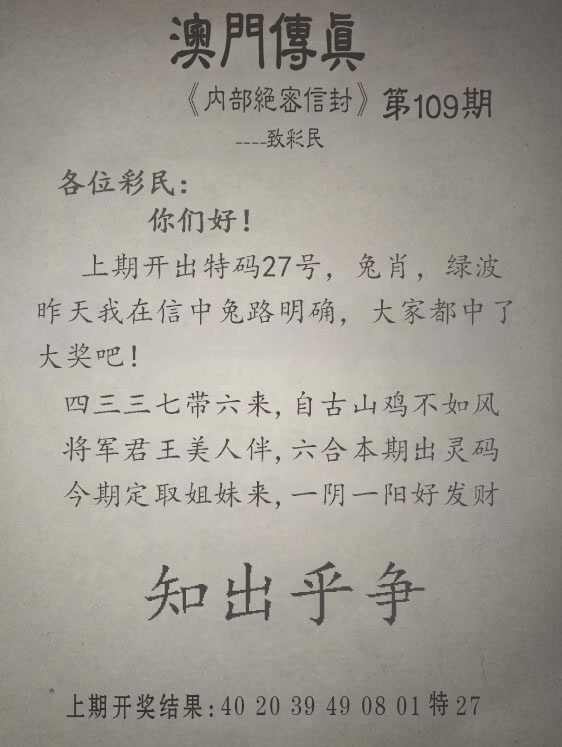 澳門傳真
《内部絕密信封》第109期
----致彩民
各位彩民：
你们好！
上期开出特码27号，兔肖，绿波
昨天我在信中兔路明确，大家都中了
大奖吧！
四三三七带六来,自古山鸡不如风
将军君王美人伴,六合本期出灵码
今期定取姐妹来,一阴一阳好发财
知出乎争
上期开奖结果:40 20 39 49 08 01特27